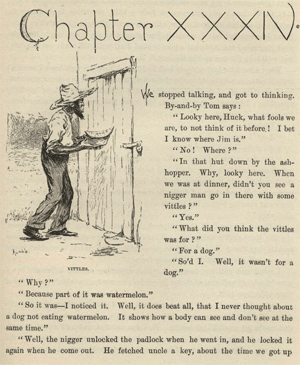 Chapter XXXIV.
We stopped talking, and got to thinking.
By-and-by Tom says:
"Looky here, Huck, what fools we
are, to not think of it before! I bet
I know where Jim is."
"No! Where?"
"In that hut down by the ash-
hopper. Why, looky here. When
we was at dinner, didn't you see a
nigger man go in there with some
vittles?"
"Yes."
"What did you think the vittles
was for?"
"For a dog."
"So'd I. Well, it wasn't for a
dog."
VITTLES.
"Why?"
"Because part of it was watermelon."
"So it was—I noticed it. Well, it does beat all, that I never thought about
a dog not eating watermelon. It shows how a body can see and don't see at the
same time."
"Well, the nigger unlocked the padlock when he went in, and he locked it
again when he come out. He fetched uncle a key, about the time we got up